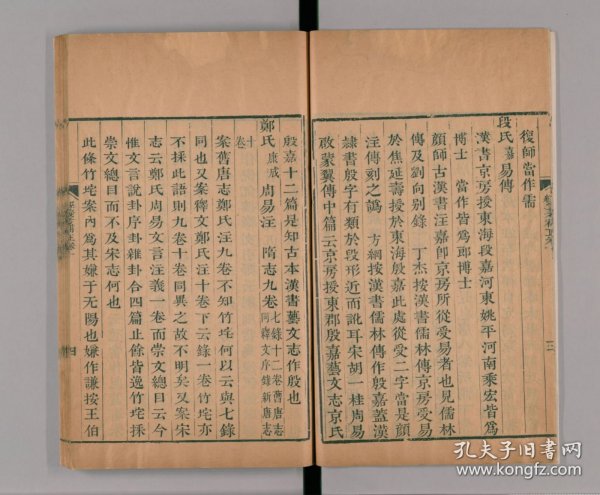 復師當作儒
段氏嘉易傳
漢書京房授東海段嘉河東姚平河南乘宏皆爲
博士 當作皆爲郎博士
顔師古漢書注嘉卽京房所從受易者也見儒林
傳及劉向别錄 丁杰按漢書儒林傳京房受易
於焦延壽授於東海殷嘉此處從受二字當是顔
注傳刻之譌 方綱按漢書儒林傳作殷嘉蓋漢
隸書殷字有類於段形近而訛耳宋胡一桂周易
啟蒙翼傳中篇云京房授東郡殷嘉藝文志京氏
殷嘉十二篇是知古本漢書藝文志作殷也
鄭氏康成周易注 隋志九卷七錄十二卷舊唐志同釋文序錄新唐志
十卷
案舊唐志鄭氏注九卷不知竹垞何以云與七錄
同也又案釋文鄭氏注十卷下云錄一卷竹垞亦
不採此語則九卷十卷同異之故不明矣又案宋
志云鄭氏周易文言注義一卷而崇文總目云今
惟文言說卦序卦雜卦合四篇止餘皆逸竹垞採
崇文總目而不及宋志何也
此條竹垞案內爲其嫌于无陽也嫌作謙按王伯
三
四
孔夫子旧书网
www.kongfz.com